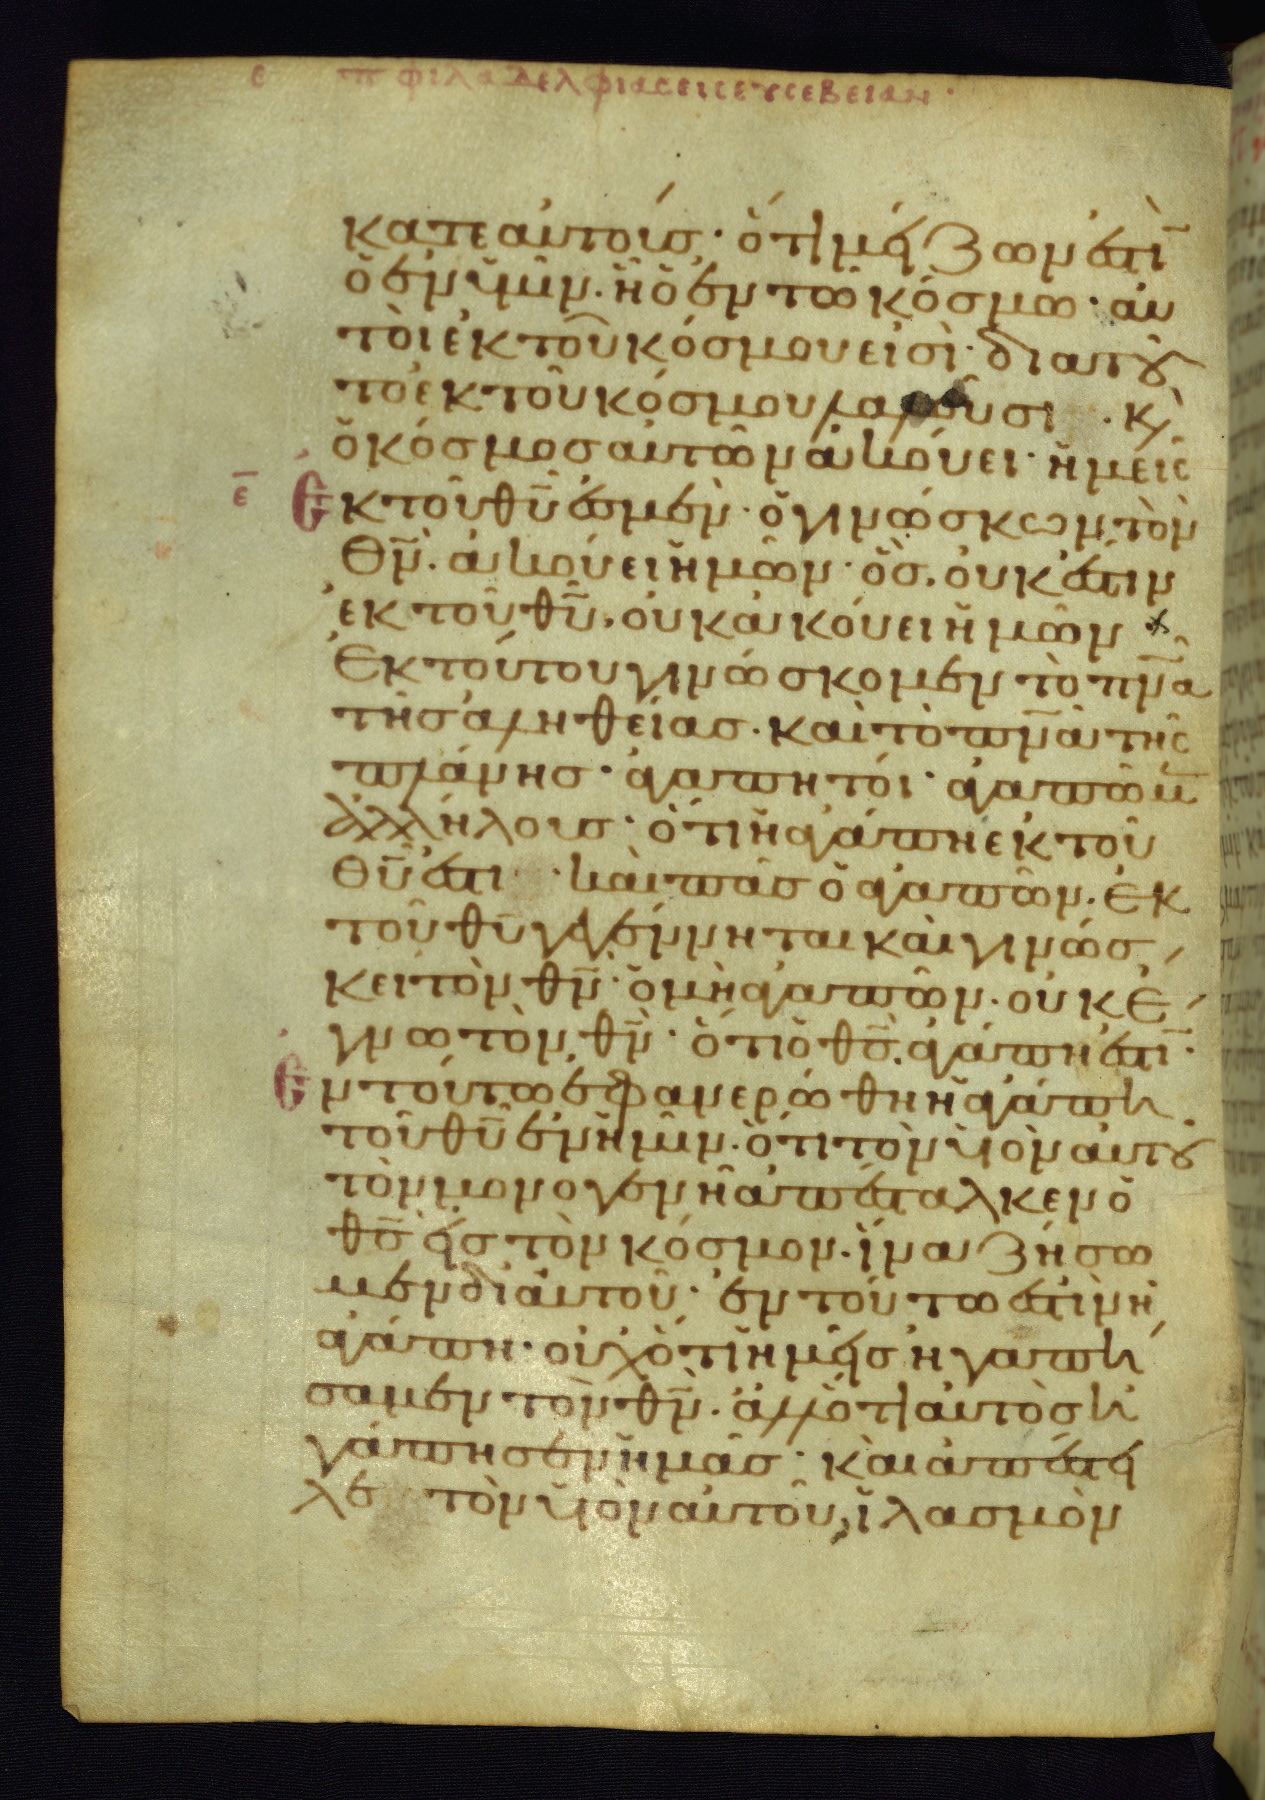 ε π φιλαδελφιας εις ευσεβειαν ·
κατε αὐτούς · ὅτι μείζων ἐστὶ
ὁ ἐν ὑμῖν · ἢ ὁ ἐν τῶ κόσμω · αὐ
τοὶ ἐκ τοῦ κόσμου εἰσὶ · διατοῦ
το ἐκ τοῦ κόσμου λαλοῦσι · κ̀
ὁ κόσμος αὐτῶν ἀκούει · ἡμεῖς
ε̄ ἐκ τοῦ θῦ ἐσμὲν · ὁ γινώσκων τὸν
θν̄ · ἀκούει ἡμῶν · ὃς οὐκ ἔστιν
ἐκ τοῦ θῦ, οὐκ ἀκούει ἡμῶν
Ἐκ τούτου γινώσκομεν τὸ πν̄ᾶ
τῆς ἀληθείας · καὶ τὸ πν̄ὰ τῆς
πλάνης · ἀγαπητοί · ἀγαπῶμ̄
ἀλλήλους · ὅτι ἡ ἀγάπη ἐκ τοῦ
θῦ ἐστι · καὶ πᾶς ὁ ἀγαπῶν · ἐκ
τοῦ θῦ γεγέννηται καὶ γινώσ
κει τὸν θν̄ · ὁ μὴ ἀγαπῶν · οὐκ ἔ
γνω τὸν θν̄ · ὅτι ὁ θς̄ ἀγάπη ἐστὶ ·
Ἐν τούτω ἐφανερώθη ἡ ἀγάπη
τοῦ θῦ ἐν ἡμῖν · ὅτι τὸν υἱὸν αὐτοῦ
τὸν μονογενῆ ἀπέσταλκεν ὁ
θς̄ εἰς τὸν κόσμον · ἵνα ζήσω
μεν δι αὐτοῦ · ἐν τούτω ἐστὶν ἡ
ἀγάπη · οὐχ ὅτι ἡμεῖς ἠγαπή
σαμεν τὸν θν̄ · ἀλλ ὅτι αὐτὸς ἠ
γάπησεν ἡμᾶς · καὶ ἀπέστει
λε τὸν υἱὸν αὐτοῦ, ἱλασμὸν